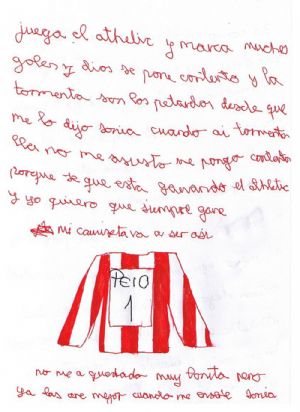 juega el athelic y marca muchos
goles y dios se pone contento y la
tormenta son los petardos desde que
me lo dijo sonia cuando ai tormenta
ella no me asusto me pongo contento
porque se que esta ganando el athletic
y yo quiero que siempre gane
mi camiseta va a ser asi
PEIO
1
no me a quedado muy bonita pero
ya las are mejor cuando me enseñe sonia